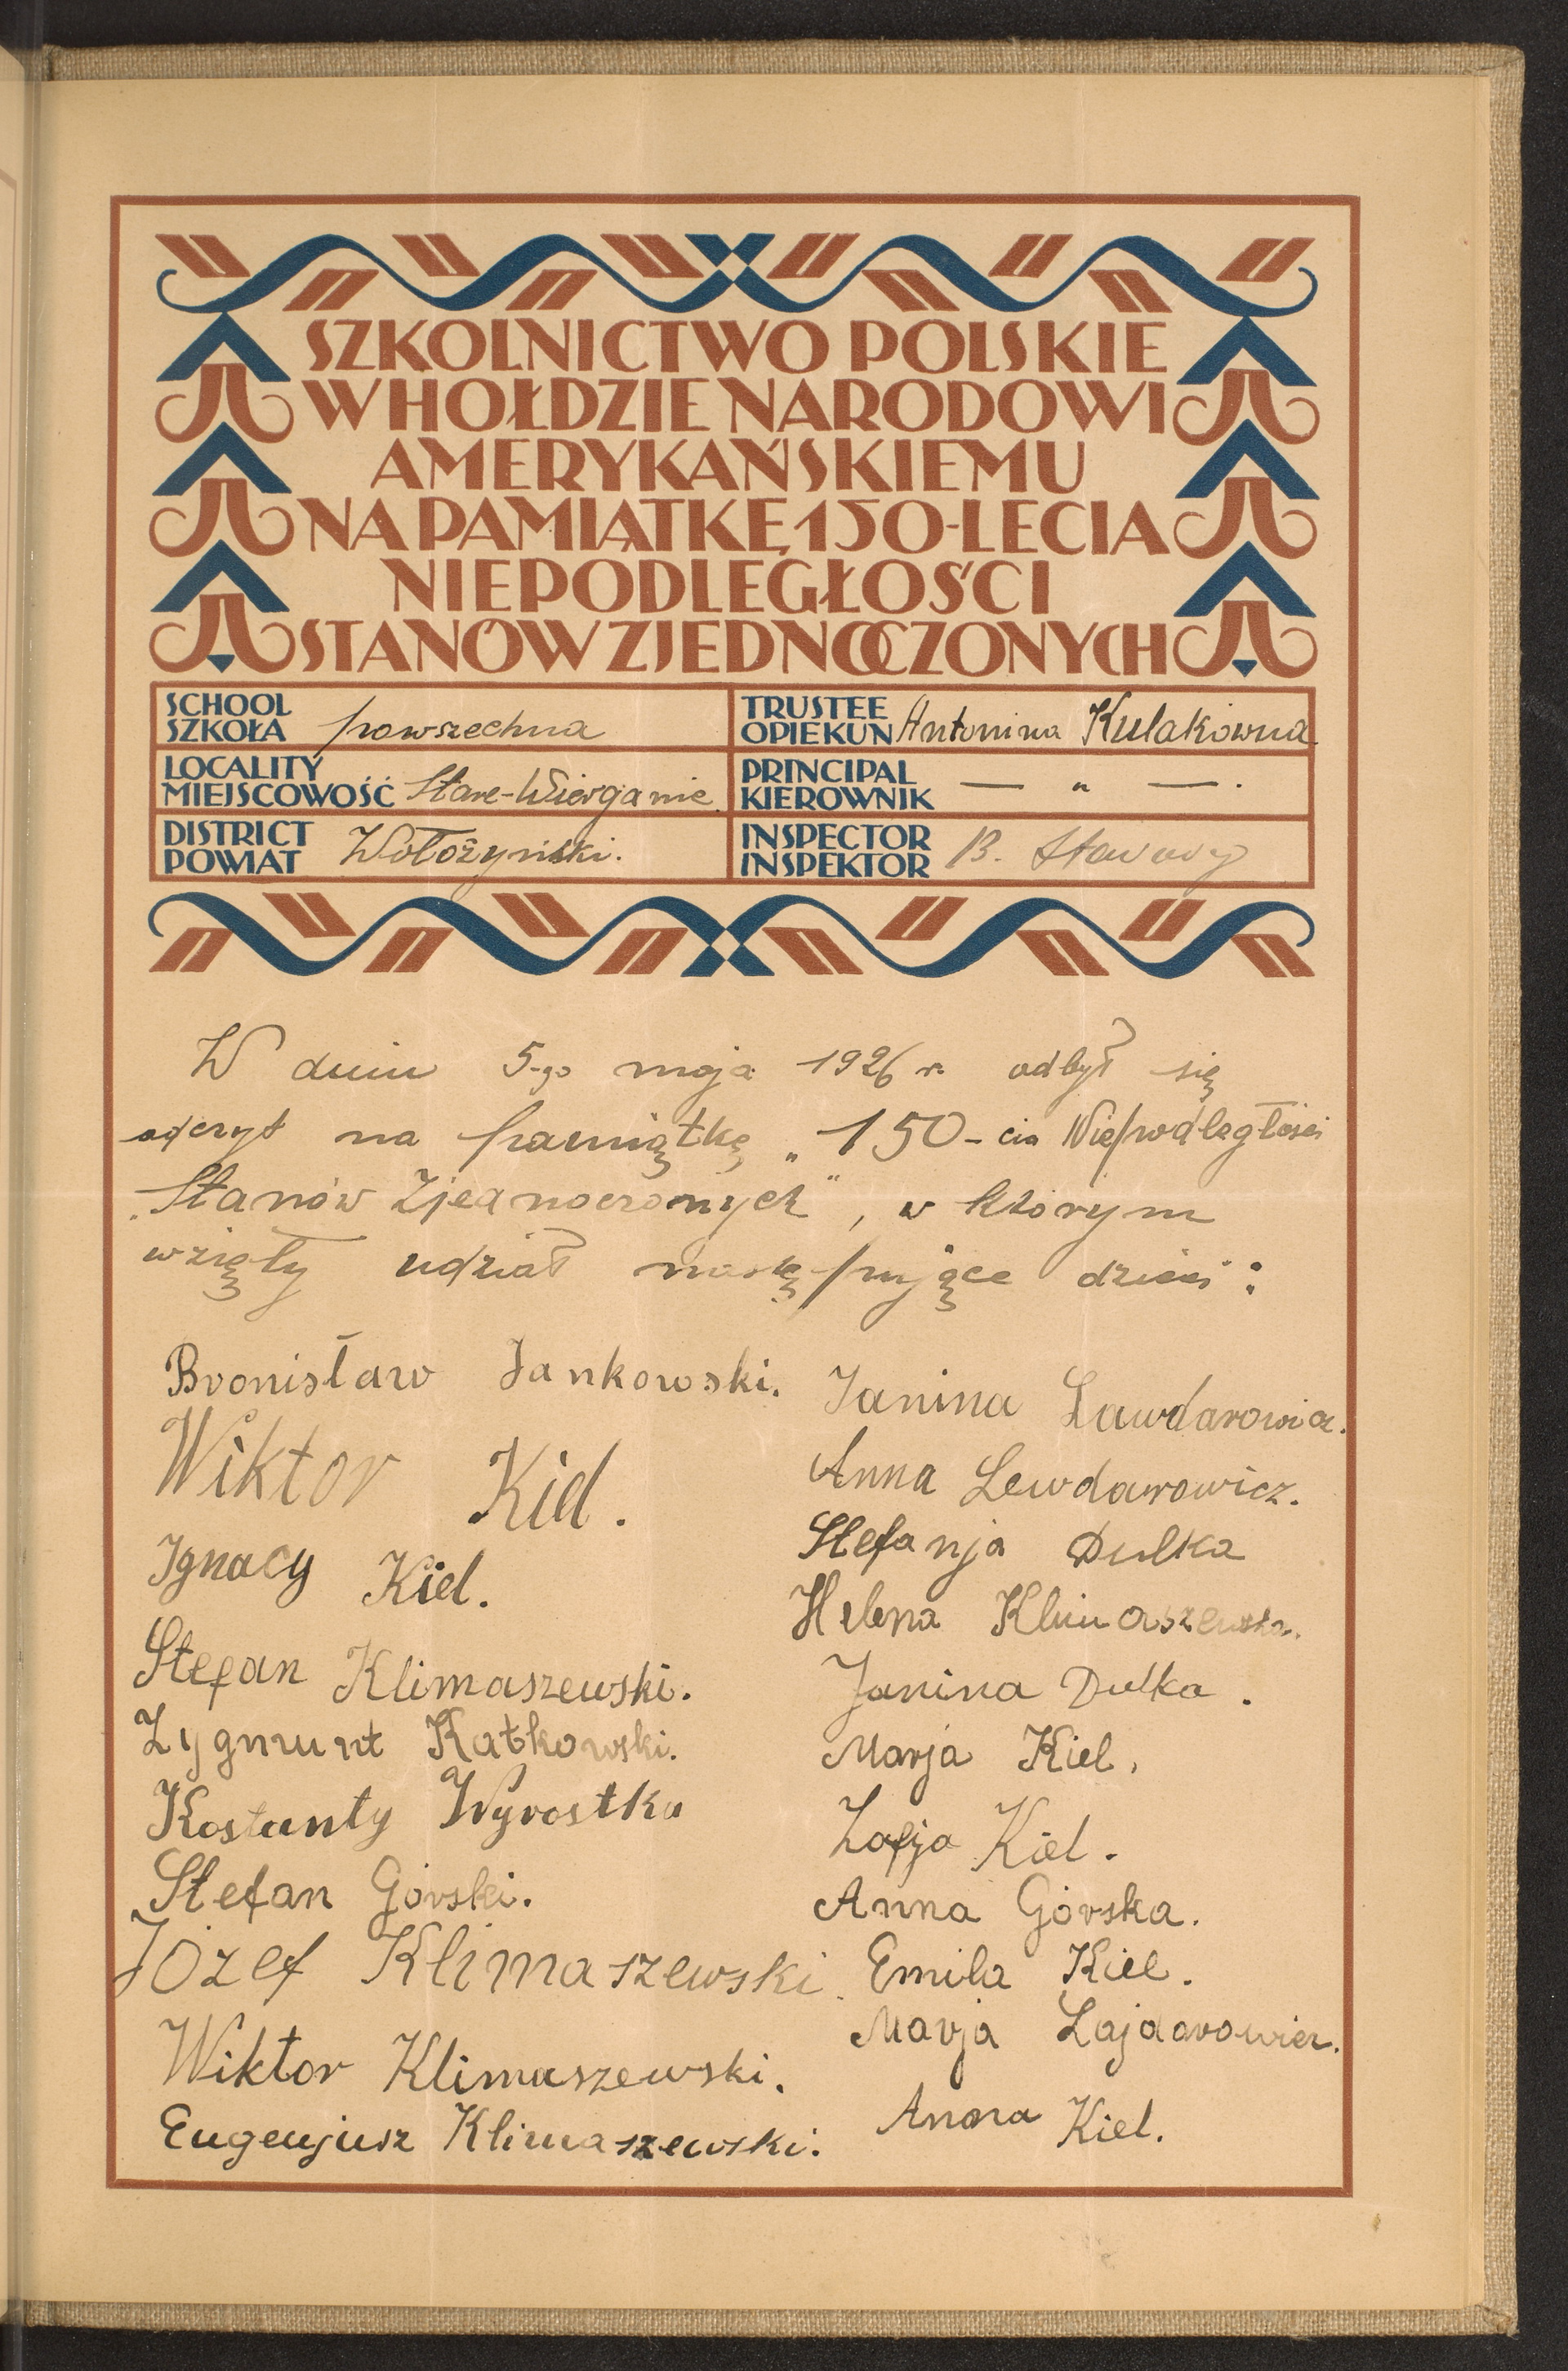 SZKOLNICTWO POLSKIE
W HOŁDZIE NARODOWI
AMERYKAŃSKIEMU
NA PAMIĄTKĘ 150-LECIA
NIEPODLEGŁOŚCI
STANÓW ZJEDNOCZONYCH
SCHOOL
SZKOŁA powszechna
TRUSTEE
OPIEKUN Antonina Kulakówna
LOCALITY
MIEJSCOWOŚĆ Stare-Wierganie
PRINCIPAL
KIEROWNIK — " — .
DISTRICT
POWIAT Wołożyński.
INSPECTOR
INSPEKTOR B.
W dniu 5-go maja 1926 r. odbył się
odczyt na pamiątkę „150-cia Niepodległości
Stanów Zjednoczonych", w którym
wzięły udział następujące dzieci:
Bronisław Jankowski.
Wiktor Kiel.
Ignacy Kiel.
Stefan Klimaszewski.
Zygmunt Katkowski.
Kostanty Wyrostka
Stefan Górski.
Józef Klimaszewski.
Wiktor Klimaszewski.
Eugenjusz Klimaszewski.
Janina Lawdarowicz.
Anna Lewdarowicz.
Stefanja Dulka
Helena Klimaszewska.
Janina Dulka.
Marja Kiel.
Zofja Kiel.
Anna Górska.
Emila Kiel.
Marja
Anna Kiel.